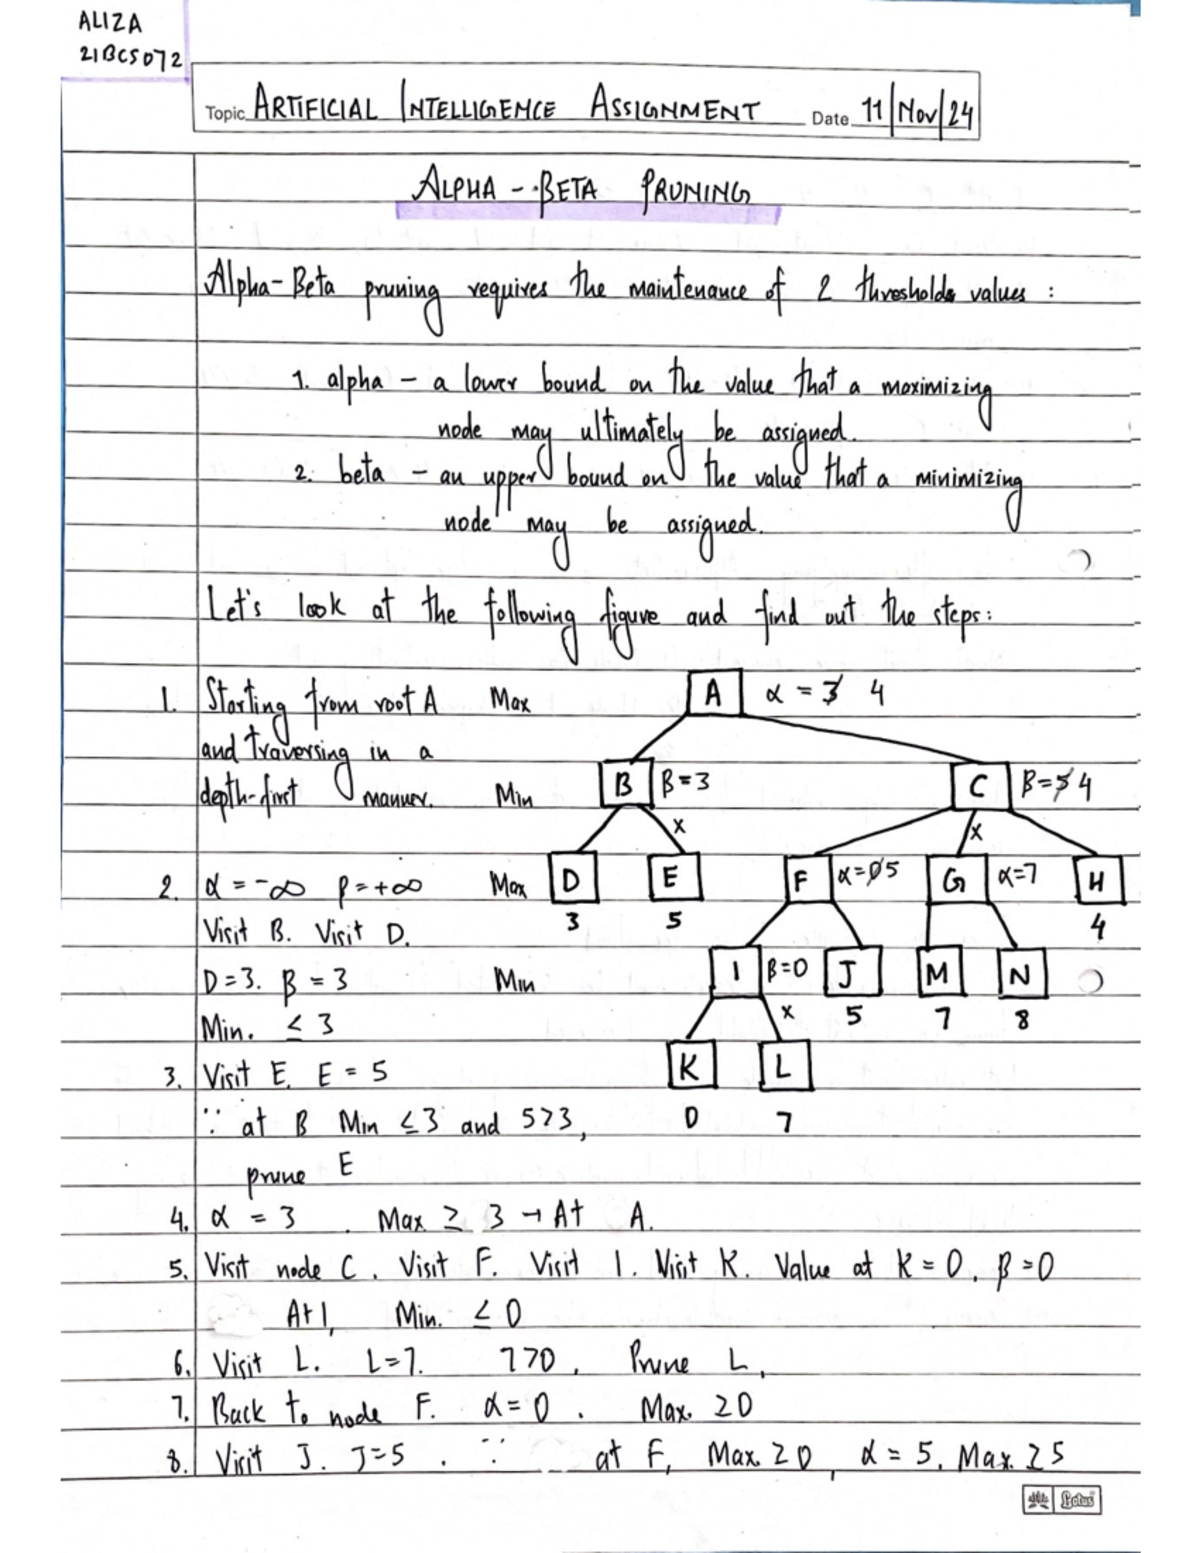 ALIZA
21BCS072
Topic ARTIFICIAL INTELLIGENCE ASSIGNMENT Date 11/Nov/24
ALPHA - BETA PRUNING
Alpha-Beta pruning requires the maintenance of 2 thresholds values :
1. alpha – a lower bound on the value that a maximizing
node may ultimately be assigned.
2. beta – an upper bound on the value that a minimizing
node may be assigned.
Let's look at the following figure and find out the steps:
1. Starting from root A
and traversing in a
depth-first manner.
Max A α = 3 4
Min B β=3 C β=5 4
x x
Max D E F α=0 5 G α=7 H
3 5 4
Min I β=0 J M N
x 5 7 8
K L
0 7
2. α = -∞ β = +∞
Visit B. Visit D.
D=3. β = 3
Min. ≤ 3
3. Visit E. E = 5
∵ at B Min ≤3 and 5>3,
prune E
4. α = 3 . Max ≥ 3 → At A.
5. Visit node C. Visit F. Visit I. Visit K. Value at K = 0. β=0
At I, Min. ≤ 0
6. Visit L. L=7. 7>0. Prune L.
7. Back to node F. α=0. Max. ≥0
8. Visit J. J=5. ∵ at F, Max. ≥0, α = 5. Max. ≥5
Lotus